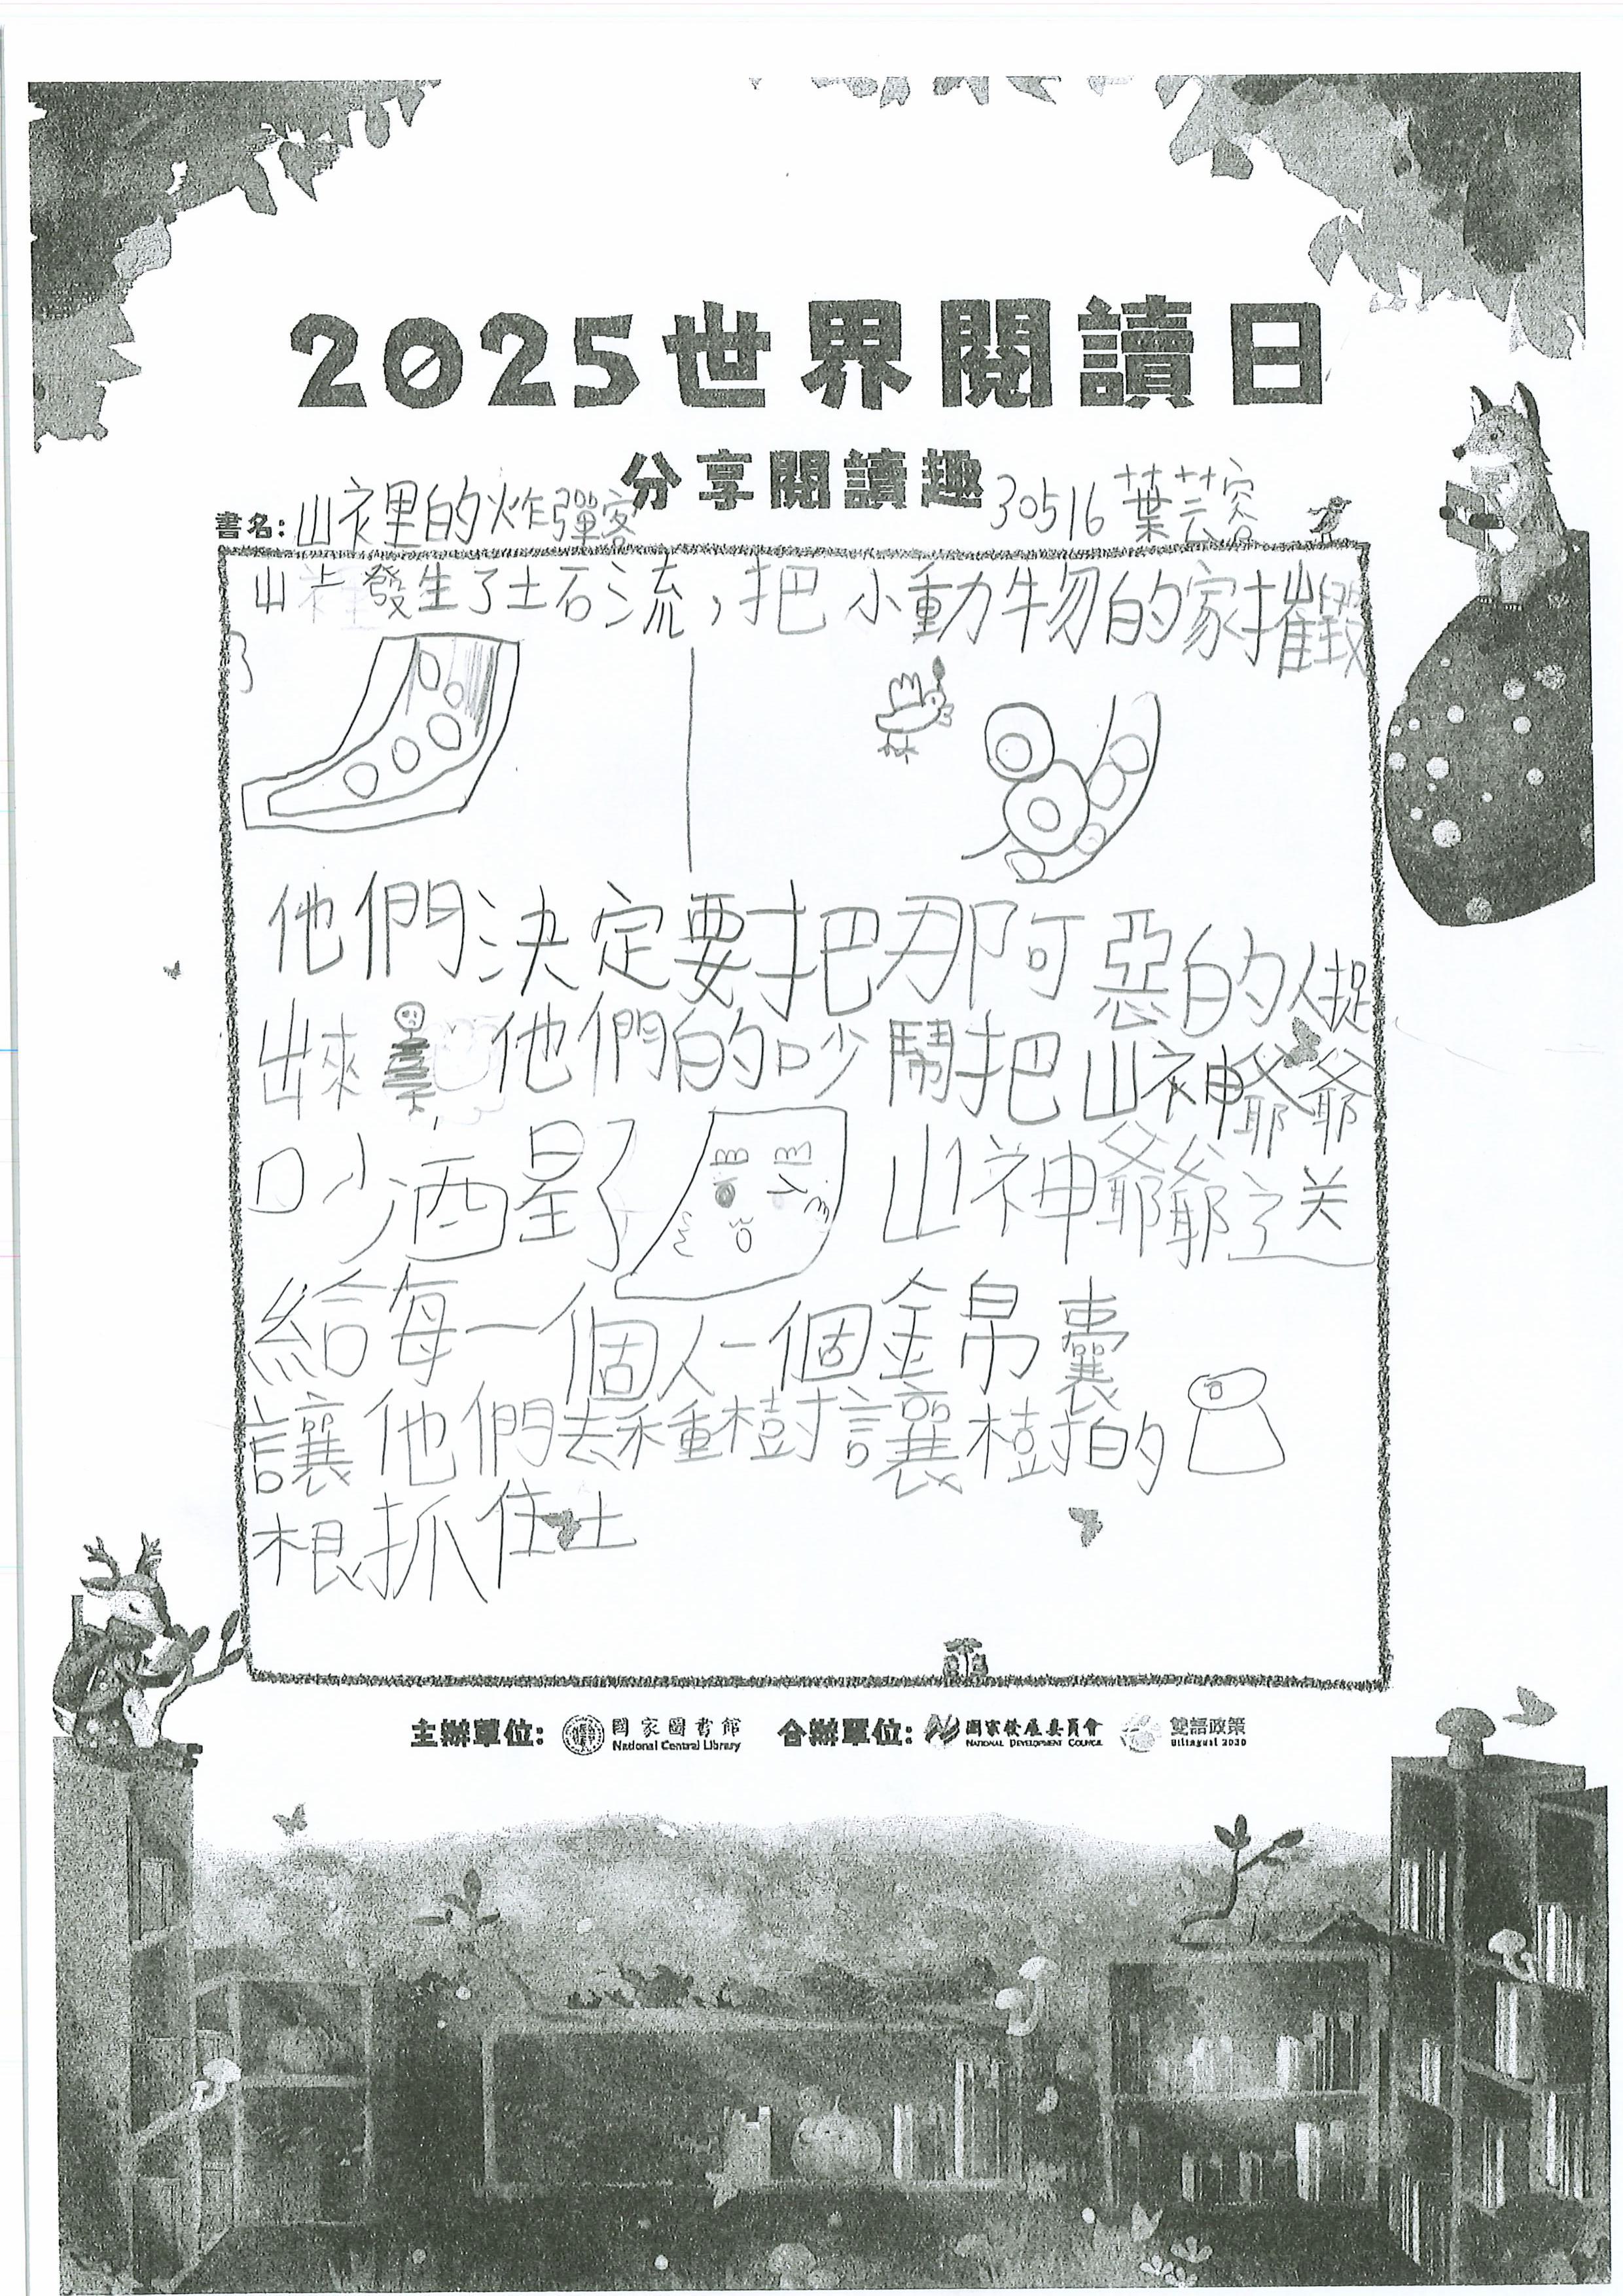 2025世界閱讀日
分享閱讀趣
書名:山裡的炸彈客 30516 葉芸容
山上發生了土石流,把小動物的家摧毀
了
他們決定要把那可惡的人捉
出來 他們的吵鬧把山神爺爺
吵醒了 山神爺爺送
給每一個人一個錦囊
讓他們去種樹讓樹的
根抓住土
主辦單位: 國家圖書館 National Central Library 合辦單位: 國家發展委員會 NATIONAL DEVELOPMENT COUNCIL 雙語政策 Bilingual 2030